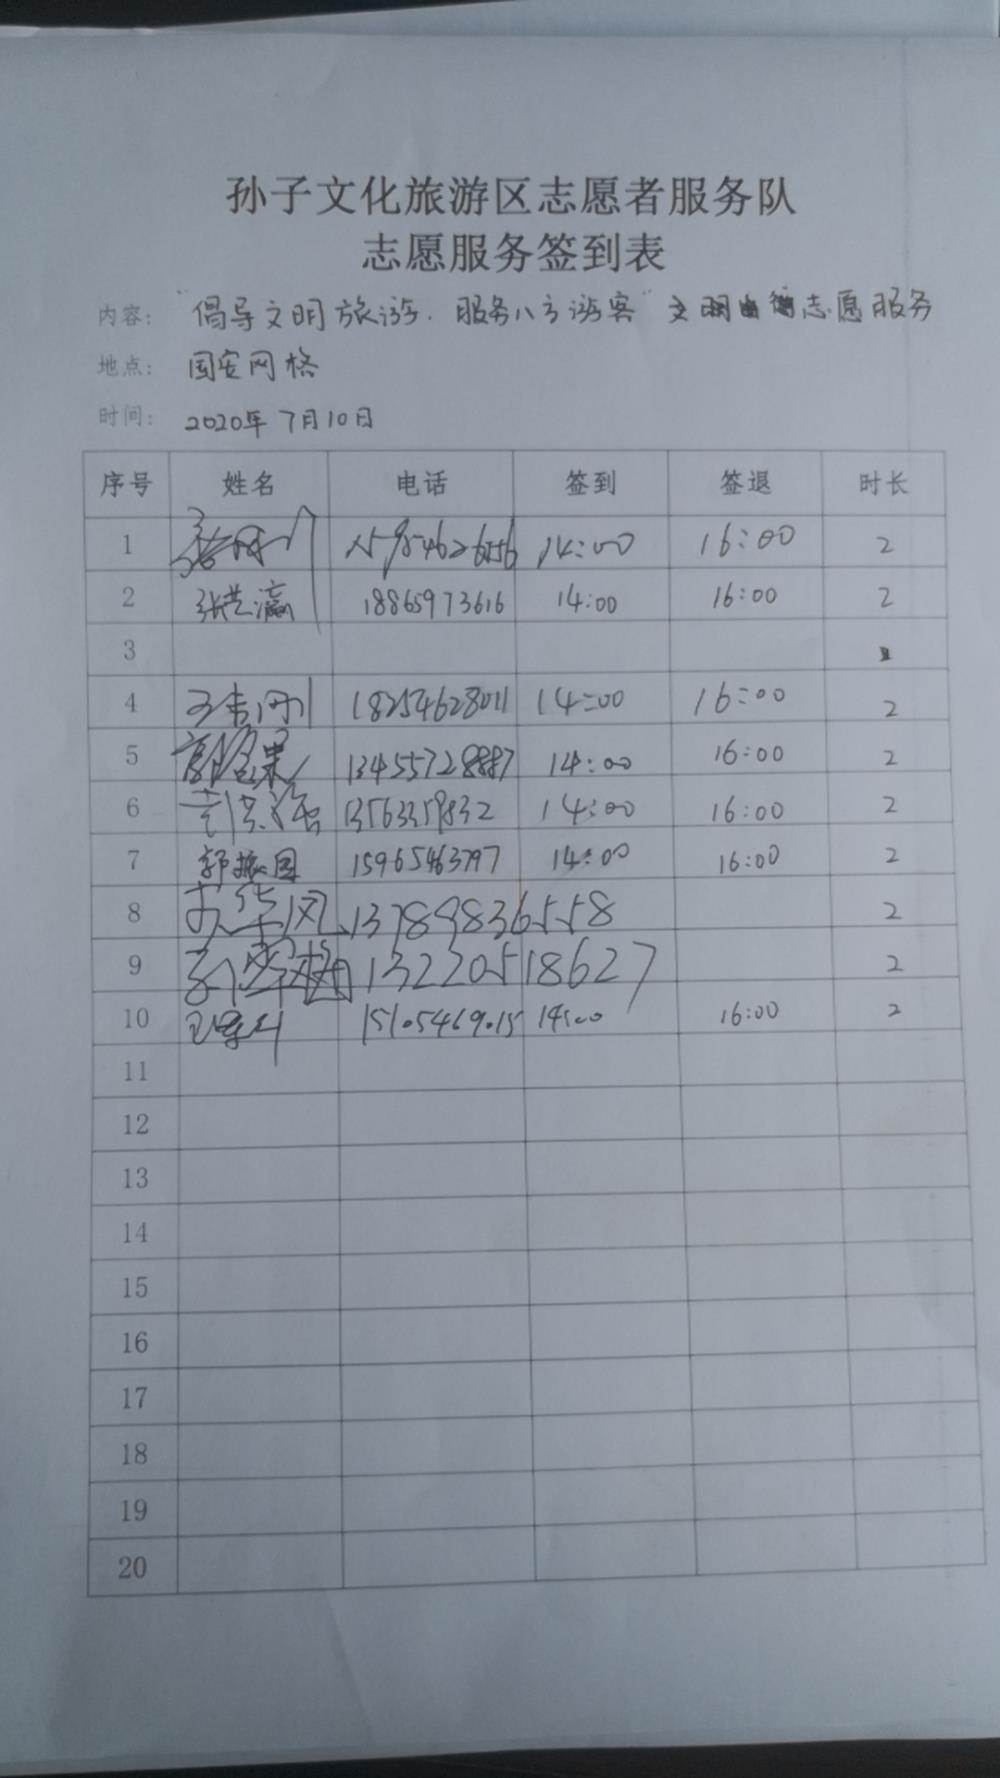 孙子文化旅游区志愿者服务队
志愿服务签到表
内容： "倡导文明旅游.服务八方游客" 文明 志愿服务
地点： 国安网格
时间： 2020年7月10日
序号 姓名 电话 签到 签退 时长
1 14:00 16:00 2
2 张芸瀛 18865973616 14:00 16:00 2
3
4 18254628011 14:00 16:00 2
5 13455728887 14:00 16:00 2
6 13563359832 14:00 16:00 2
7 郭振国 15965463797 14:00 16:00 2
8 13789836558 2
9 13220518627 2
10 15105469015 14:00 16:00 2
11
12
13
14
15
16
17
18
19
20